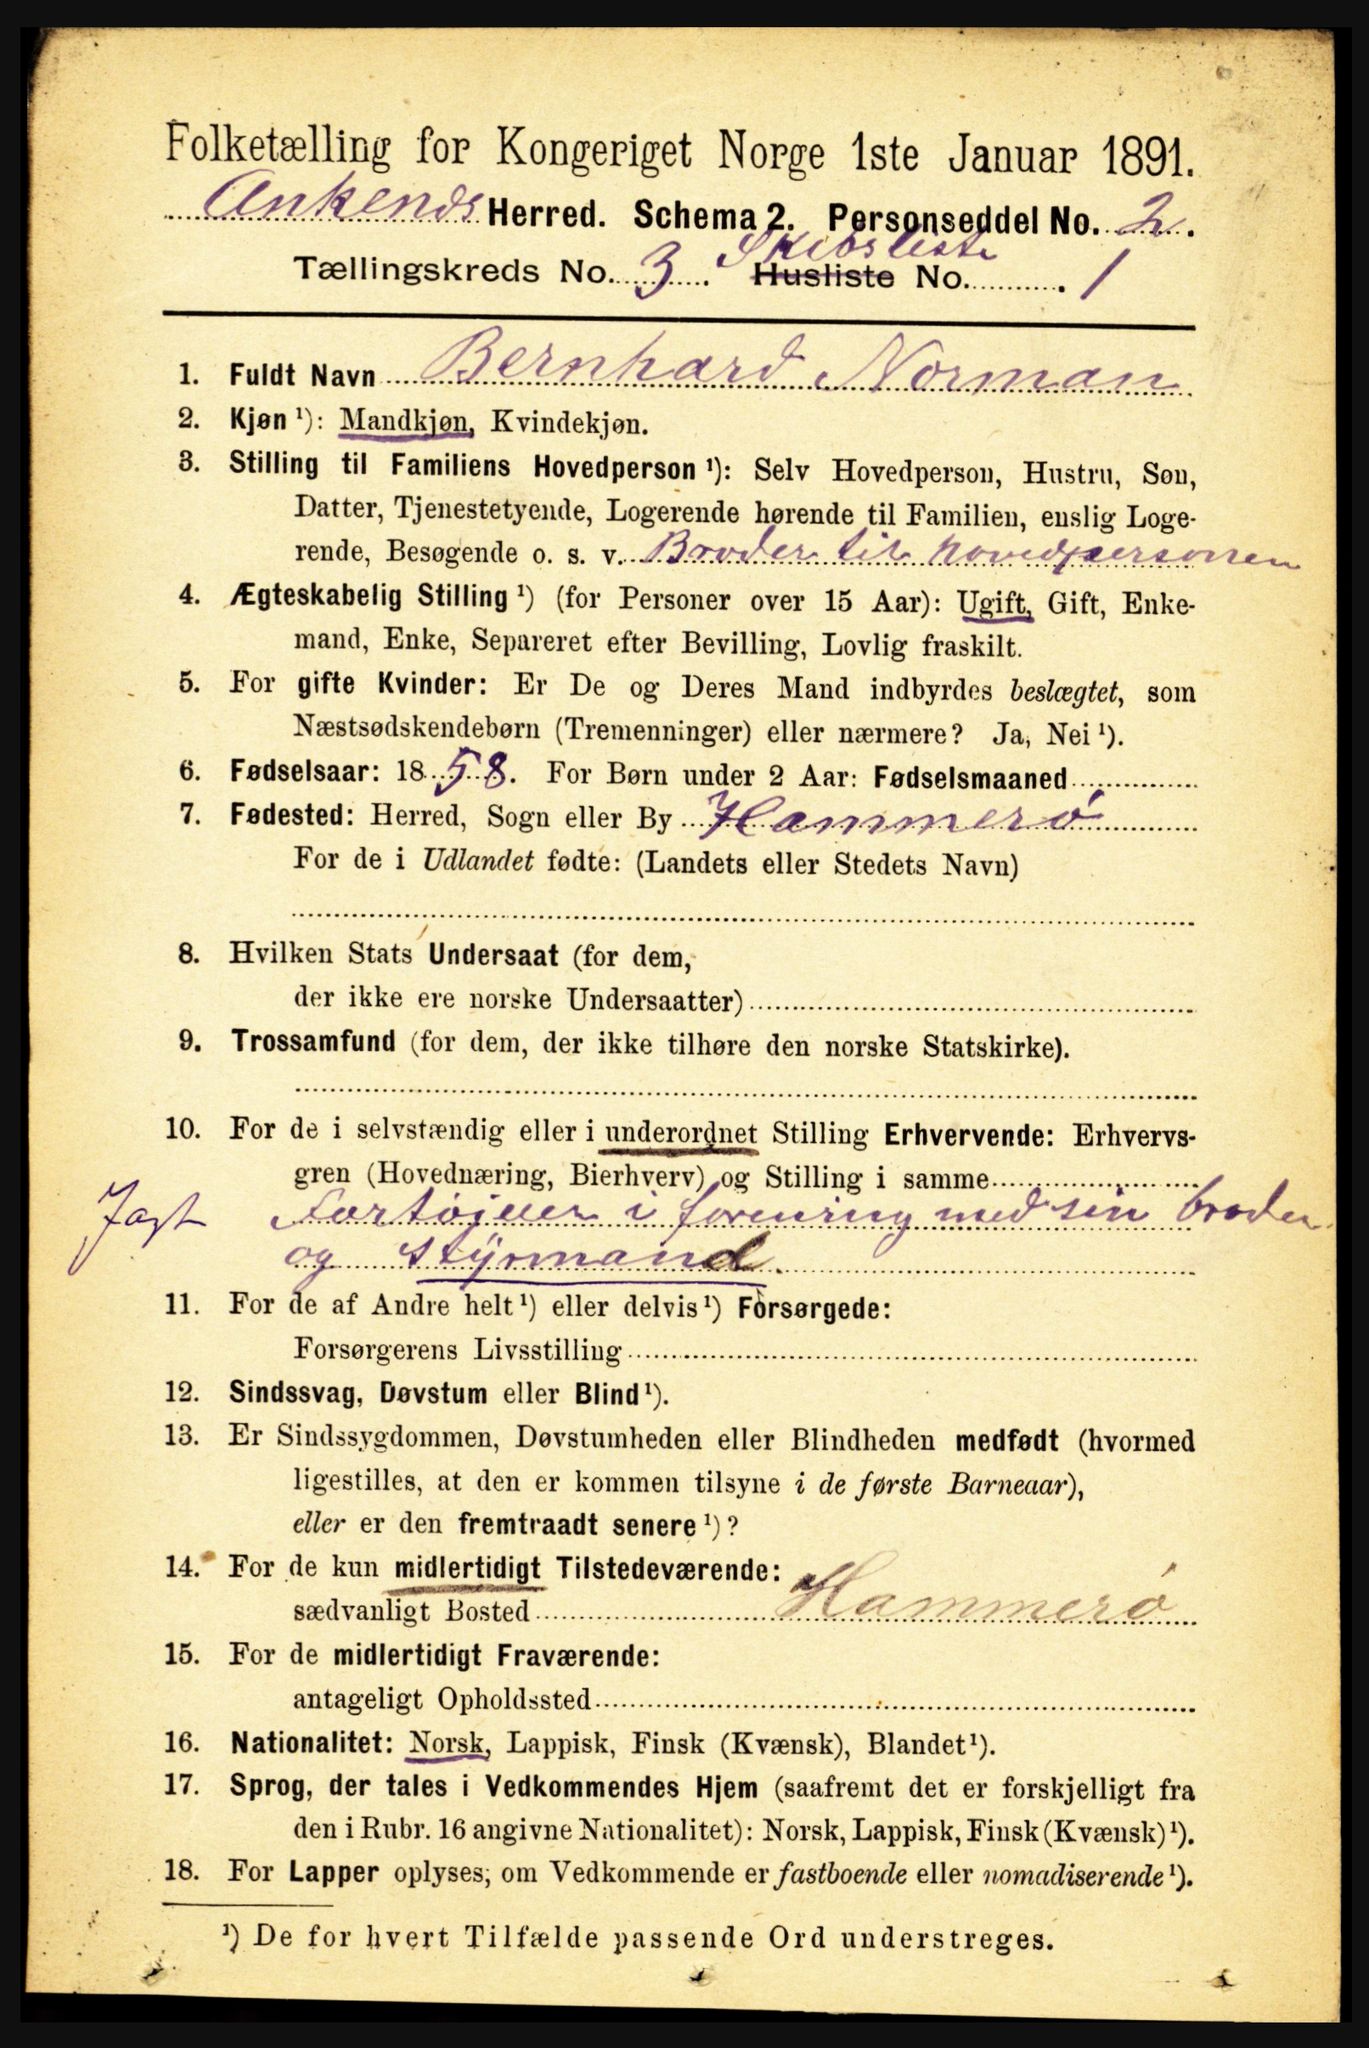 Folketælling for Kongeriget Norge 1ste Januar 1891.
Ankends Herred. Schema 2. Personseddel No. 2.
Skibsliste
Tællingskreds No. 3. Husliste No. 1
1. Fuldt Navn Bernhard Norman
2. Kjøn ¹): Mandkjøn, Kvindekjøn.
3. Stilling til Familiens Hovedperson ¹): Selv Hovedperson, Hustru, Søn,
Datter, Tjenestetyende, Logerende hørende til Familien, enslig Loge-
rende, Besøgende o. s. v. Broder til hovedpersonen
4. Ægteskabelig Stilling ¹) (for Personer over 15 Aar): Ugift, Gift, Enke-
mand, Enke, Separeret efter Bevilling, Lovlig fraskilt.
5. For gifte Kvinder: Er De og Deres Mand indbyrdes beslægtet, som
Næstsødskendebørn (Tremenninger) eller nærmere? Ja, Nei ¹).
6. Fødselsaar: 1858. For Børn under 2 Aar: Fødselsmaaned
7. Fødested: Herred, Sogn eller By Hammerø
For de i Udlandet fødte: (Landets eller Stedets Navn)
8. Hvilken Stats Undersaat (for dem,
der ikke ere norske Undersaatter)
9. Trossamfund (for dem, der ikke tilhøre den norske Statskirke).
10. For de i selvstændig eller i underordnet Stilling Erhvervende: Erhvervs-
gren (Hovednæring, Bierhverv) og Stilling i samme
Jagt Fartøjeier i forening med sin broder
og styrmand.
11. For de af Andre helt ¹) eller delvis ¹) Forsørgede:
Forsørgerens Livsstilling
12. Sindssvag, Døvstum eller Blind ¹).
13. Er Sindssygdommen, Døvstumheden eller Blindheden medfødt (hvormed
ligestilles, at den er kommen tilsyne i de første Barneaar),
eller er den fremtraadt senere ¹)?
14. For de kun midlertidigt Tilstedeværende:
sædvanligt Bosted Hammerø
15. For de midlertidigt Fraværende:
antageligt Opholdssted
16. Nationalitet: Norsk, Lappisk, Finsk (Kvænsk), Blandet ¹).
17. Sprog, der tales i Vedkommendes Hjem (saafremt det er forskjelligt fra
den i Rubr. 16 angivne Nationalitet): Norsk, Lappisk, Finsk (Kvænsk) ¹).
18. For Lapper oplyses, om Vedkommende er fastboende eller nomadiserende ¹).
¹) De for hvert Tilfælde passende Ord understreges.